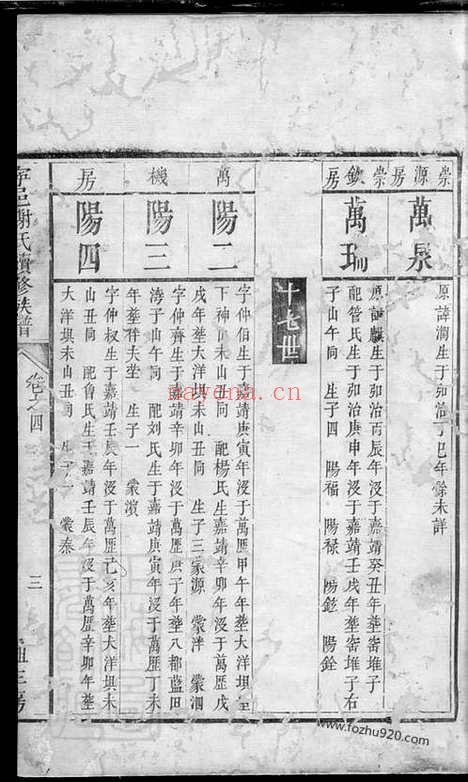 崇源房
萬泉
原諱潤生于弘治丁巳年餘未詳
崇欽房
萬瑞
原諱麒生于弘治丙辰年歿于嘉靖癸丑年塟窑堆子
配管氏生于弘治庚申年歿于嘉靖壬戌年塟窑堆子右
子山午向 生子四 陽福 陽祿 陽鉱 陽銓
十七世
萬機房
陽二
字仲伯生于嘉靖庚寅年歿于萬歷甲午年塟大洋垻
下神 未山丑向 配楊氏生嘉靖辛卯年歿于萬歷戊
戌年塟大洋垻未山丑向 生子三 蒙源 蒙泮 蒙泗
陽三
字仲齊生于嘉靖辛卯年歿于萬歷庚子年塟八都藍田
海子山午向 配刘氏生于嘉靖庚寅年歿于萬歷丁未
年塟祔夫坐 生子一 蒙濱
陽四
字仲叔生于嘉靖壬辰年歿于萬歷己亥年塟大洋垻未
山丑向 配魯氏生于嘉靖壬辰年歿于萬歷辛卯年塟
大洋垻未山丑向 生子一 蒙泰
寧邑謝氏續修族譜
卷之四
三
myona.cn
www.fozhu920.com